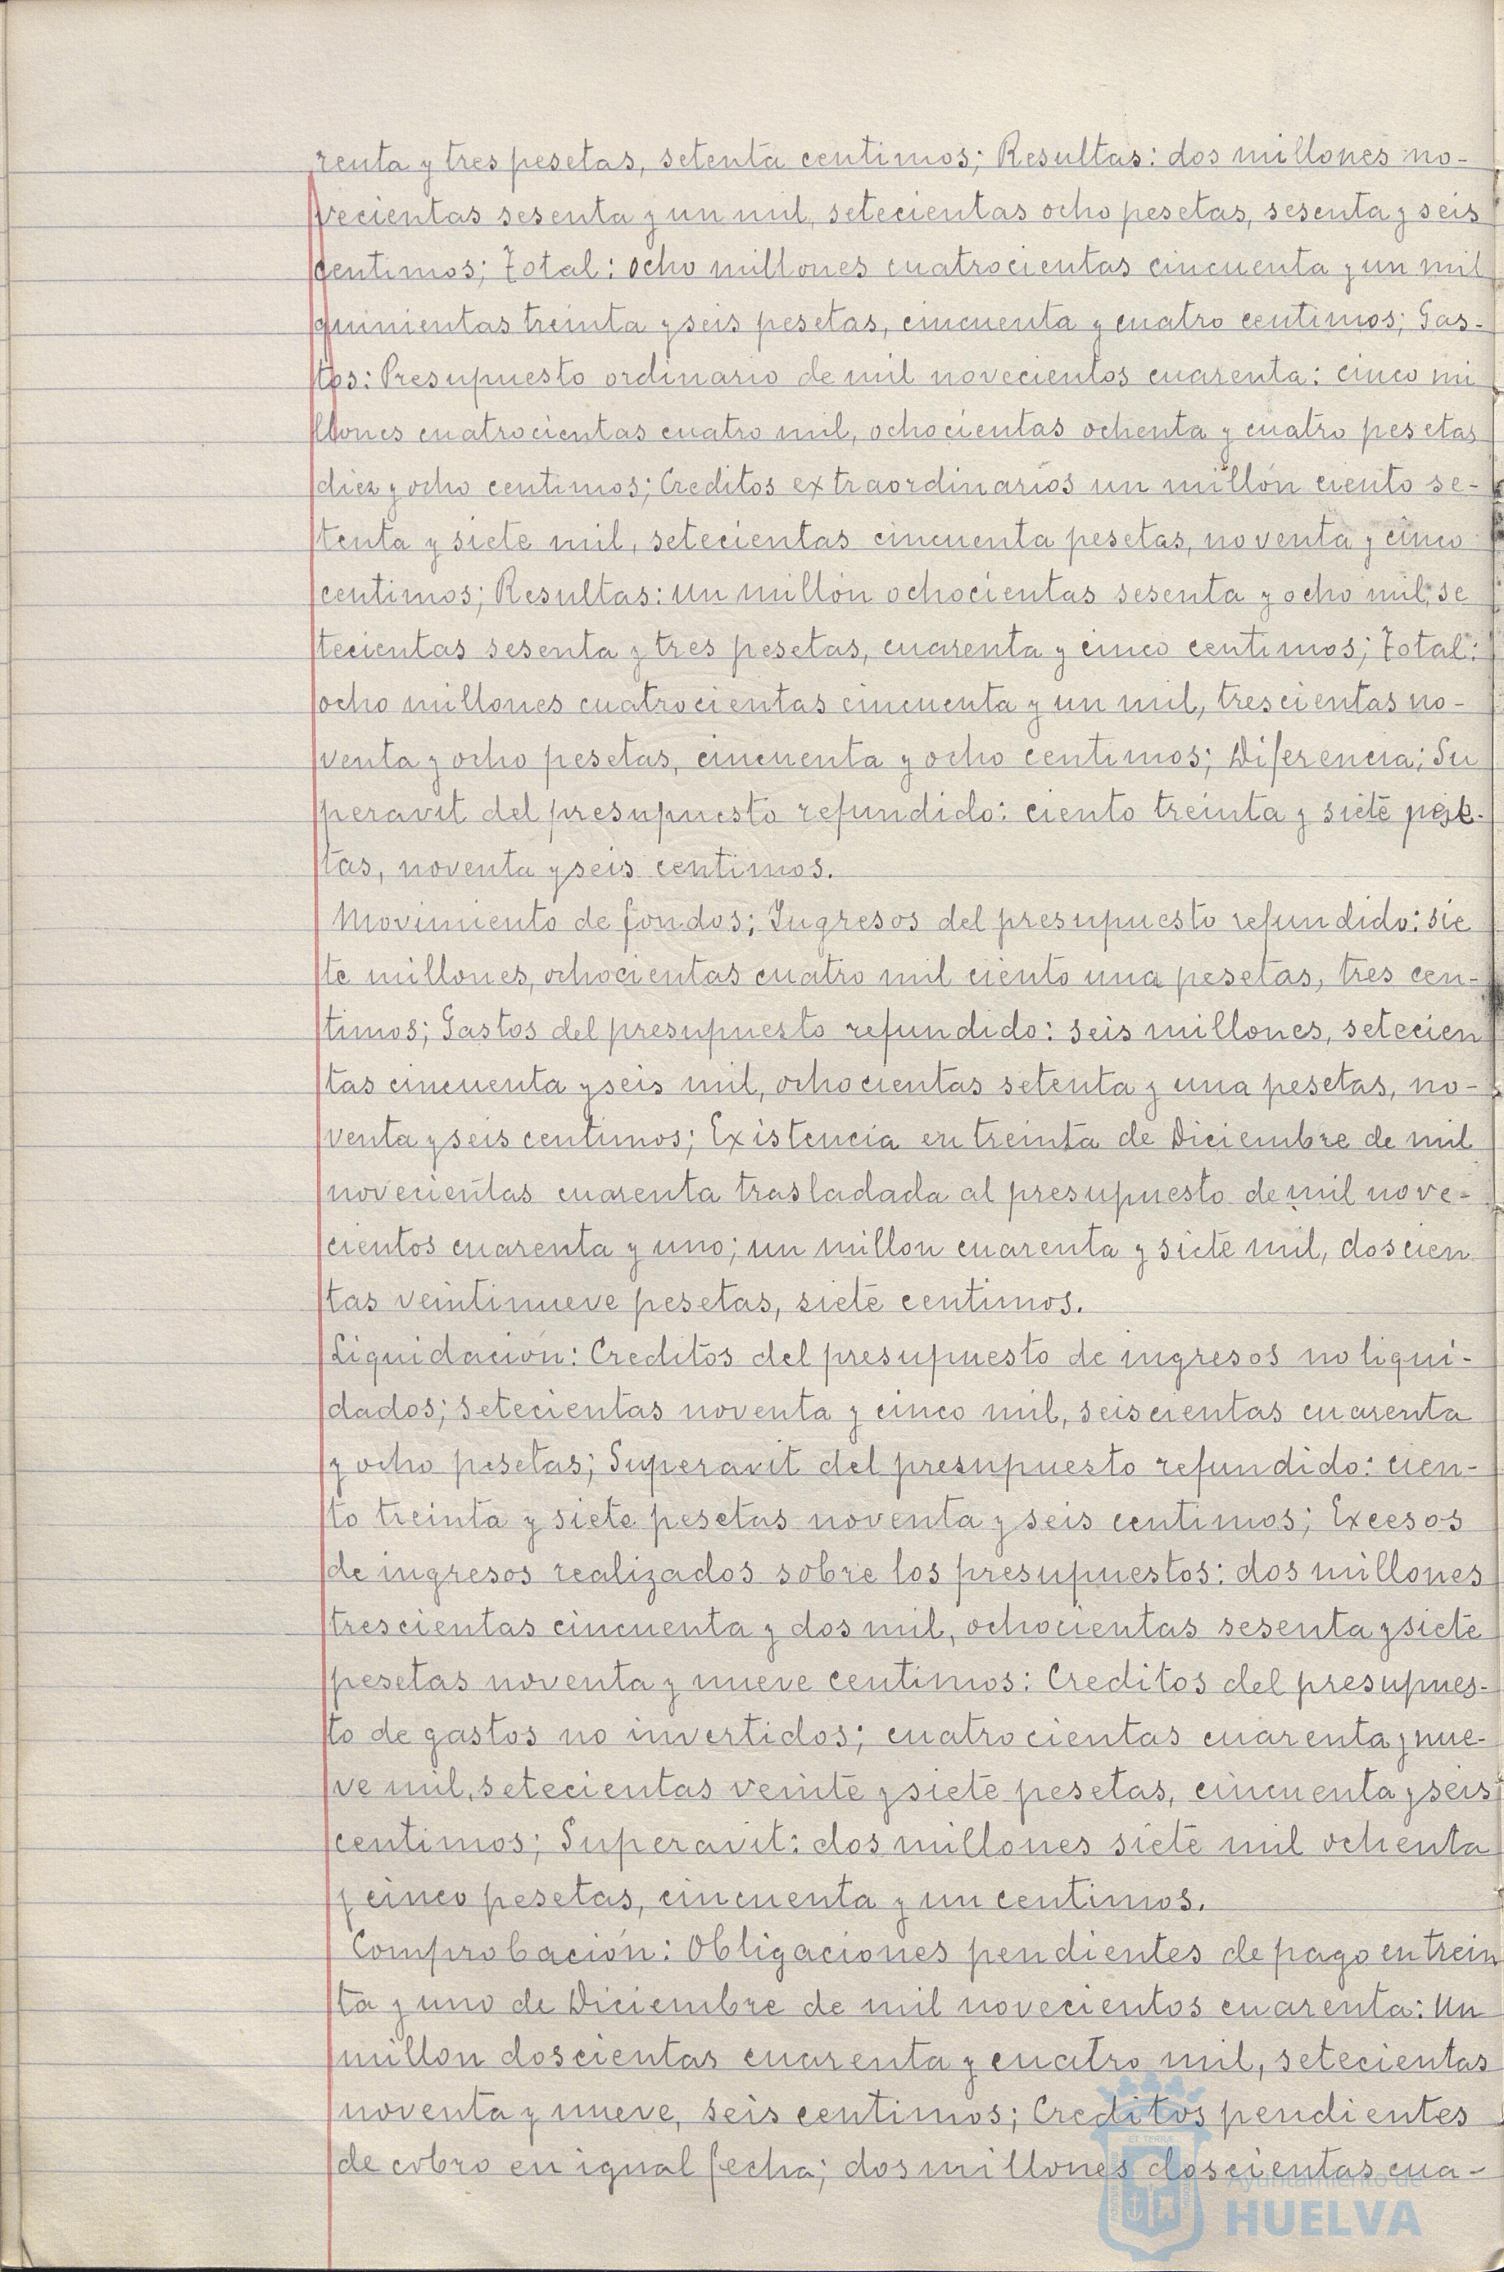 renta y tres pesetas, setenta centimos; Resultas: dos millones no-
vecientas sesenta y un mil, setecientas ocho pesetas, sesenta y seis
centimos; Total: ocho millones cuatrocientas cincuenta y un mil
quinientas treinta y seis pesetas, cincuenta y cuatro centimos; Gas-
tos: Presupuesto ordinario de mil novecientos cuarenta: cinco mi
llones cuatrocientas cuatro mil, ochocientas ochenta y cuatro pesetas
diez y ocho centimos; Creditos extraordinarios un millón ciento se-
tenta y siete mil, setecientas cincuenta pesetas, noventa y cinco
centimos; Resultas: un millón ochocientas sesenta y ocho mil, se
tecientas sesenta y tres pesetas, cuarenta y cinco centimos; Total:
ocho millones cuatrocientas cincuenta y un mil, trescientas no-
venta y ocho pesetas, cincuenta y ocho centimos; Diferencia; Su
peravit del presupuesto refundido: ciento treinta y siete pese-
tas, noventa y seis centimos.
Movimiento de fondos; Ingresos del presupuesto refundido: sie
te millones, ochocientas cuatro mil ciento una pesetas, tres cen-
timos; Gastos del presupuesto refundido: seis millones, setecien
tas cincuenta y seis mil, ochocientas setenta y una pesetas, no-
venta y seis centimos; Existencia en treinta de Diciembre de mil
novecientas cuarenta trasladada al presupuesto de mil nove-
cientos cuarenta y uno; un millon cuarenta y siete mil, doscien
tas veintinueve pesetas, siete centimos.
Liquidación: Creditos del presupuesto de ingresos no liqui-
dados; setecientas noventa y cinco mil, seiscientas cuarenta
y ocho pesetas; Superavit del presupuesto refundido: cien-
to treinta y siete pesetas noventa y seis centimos; Excesos
de ingresos realizados sobre los presupuestos: dos millones
trescientas cincuenta y dos mil, ochocientas sesenta y siete
pesetas noventa y nueve centimos: Creditos del presupues-
to de gastos no invertidos; cuatrocientas cuarenta y nue-
ve mil, setecientas veinte y siete pesetas, cincuenta y seis
centimos; Superavit: dos millones siete mil ochenta
y cinco pesetas, cincuenta y un centimos.
Comprobación: Obligaciones pendientes de pago en trein
ta y uno de Diciembre de mil novecientos cuarenta: Un
millon doscientas cuarenta y cuatro mil, setecientas
noventa y nueve, seis centimos; Creditos pendientes
de cobro en igual fecha; dos millones doscientas cua-
Ayuntamiento de
HUELVA